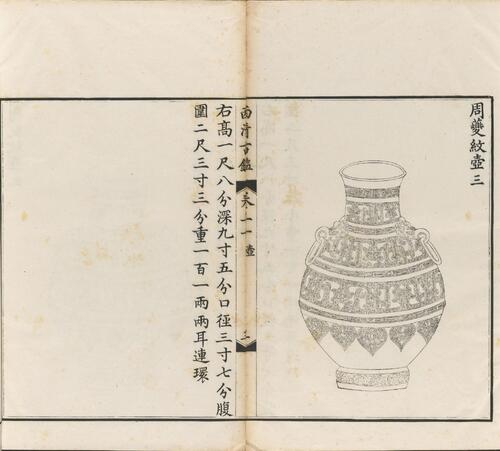 周夔紋壺三
西清古鑑
卷二一
壺
三
右高一尺八分深九寸五分口徑三寸七分腹
圍二尺三寸三分重一百一兩兩耳連環